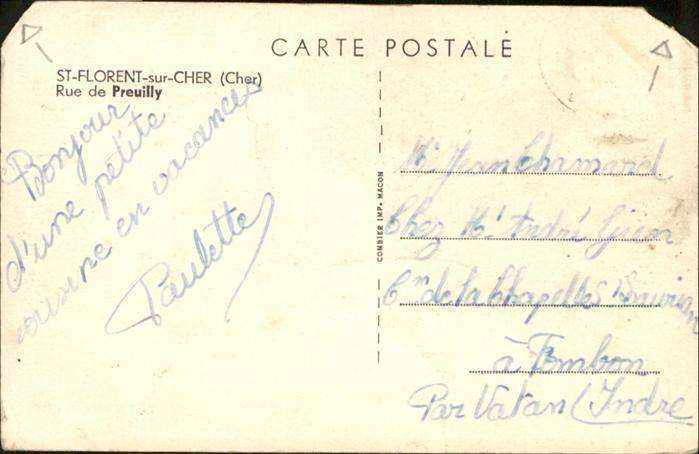 CARTE POSTALE
ST-FLORENT-sur-CHER (Cher)
Rue de Preuilly
Bonjour
d'une petite
cousine en vacances
Paulette
COMBIER IMP. MACON
Mr Jean Chamard
Chez Mr André
Cm de la Chapelle St Laurian
à
Par Vatan (Indre